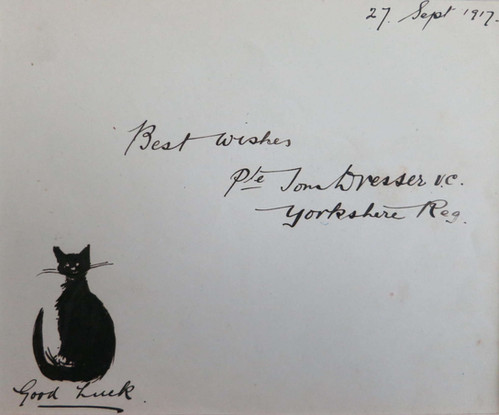 27. Sept 1917.
Best Wishes
Pte Tom Dresser V.C.
Yorkshire Reg.
Good Luck.